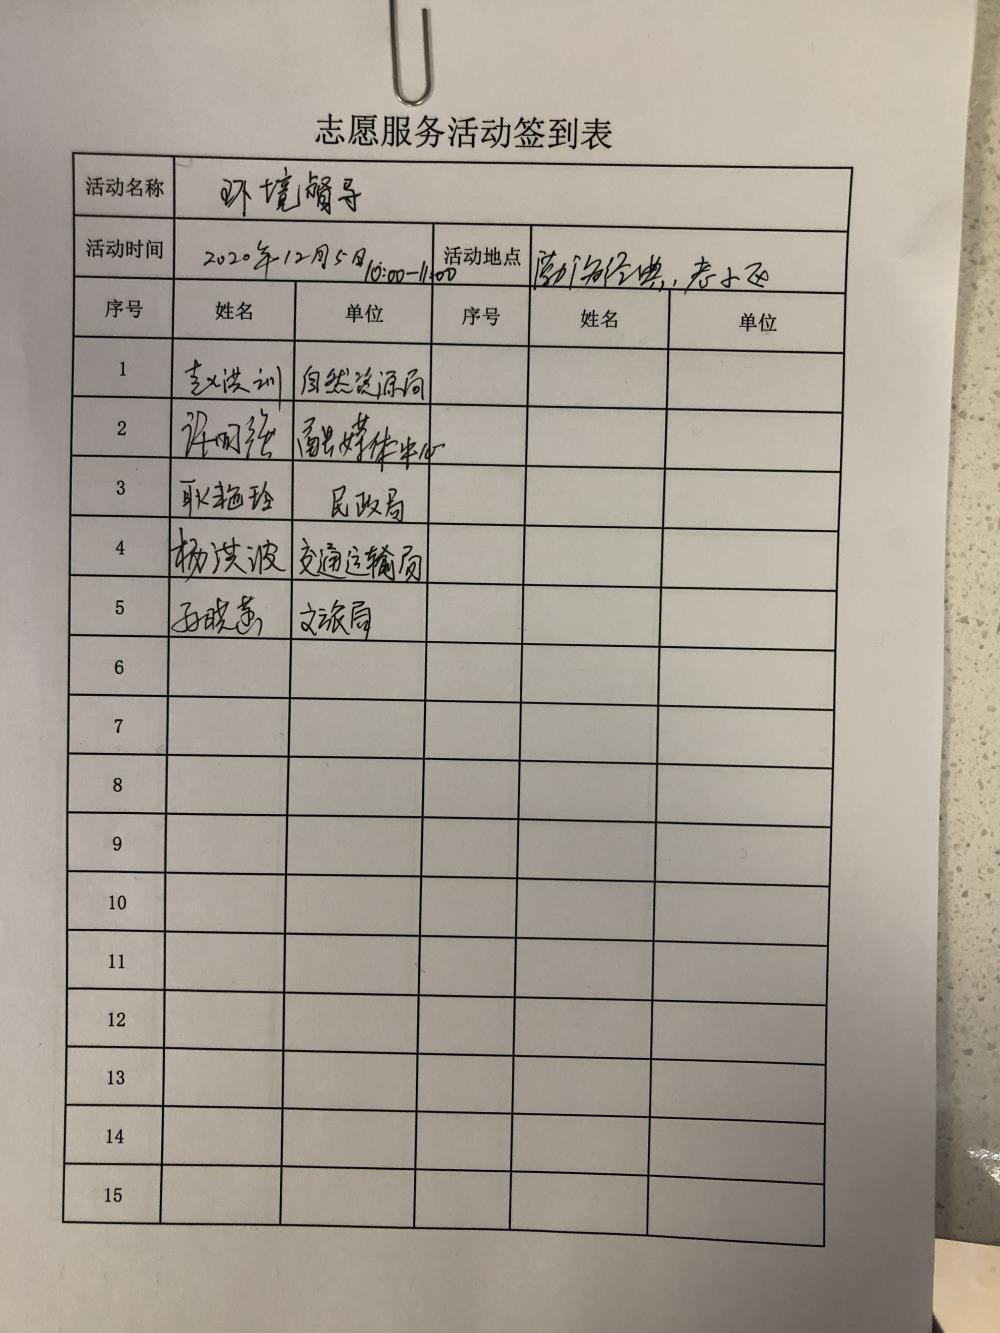 志愿服务活动签到表
活动名称 环境督导
活动时间 2020年12月5日10:00-11:00 活动地点 渤海经典、老小区
序号 姓名 单位 序号 姓名 单位
1 赵洪训 自然资源局
2 许明强 融媒体中心
3 耿艳玲 民政局
4 杨洪波 交通运输局
5 孙晓 文旅局
6
7
8
9
10
11
12
13
14
15